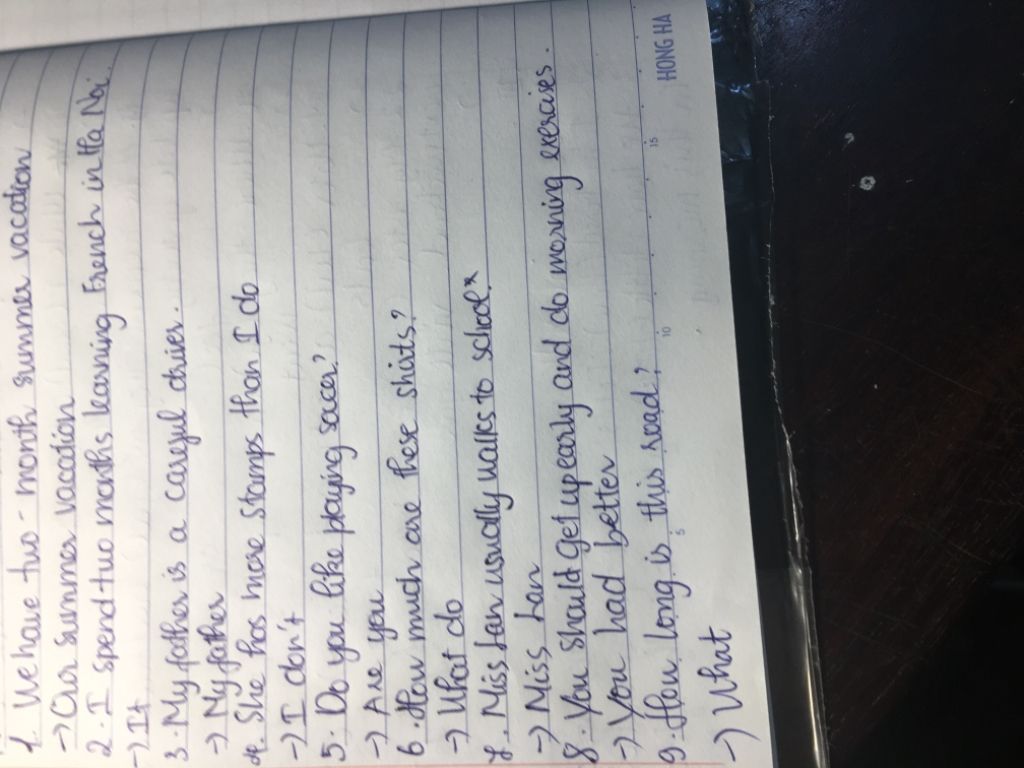 1. We have two - month summer vacation
-> Our summer vacation
2. I spend two months learning French in Ha Noi.
-> It
3. My father is a careful driver.
-> My father
4. She has more stamps than I do
-> I don't
5. Do you like playing soccer?
-> Are you
6. How much are these shirts?
-> What do
7. Miss Lan usually walks to school.
-> Miss Lan
8. You should get up early and do morning exercises.
-> You had better
9. How long is this road?
-> What
5 10 15
HONG HA